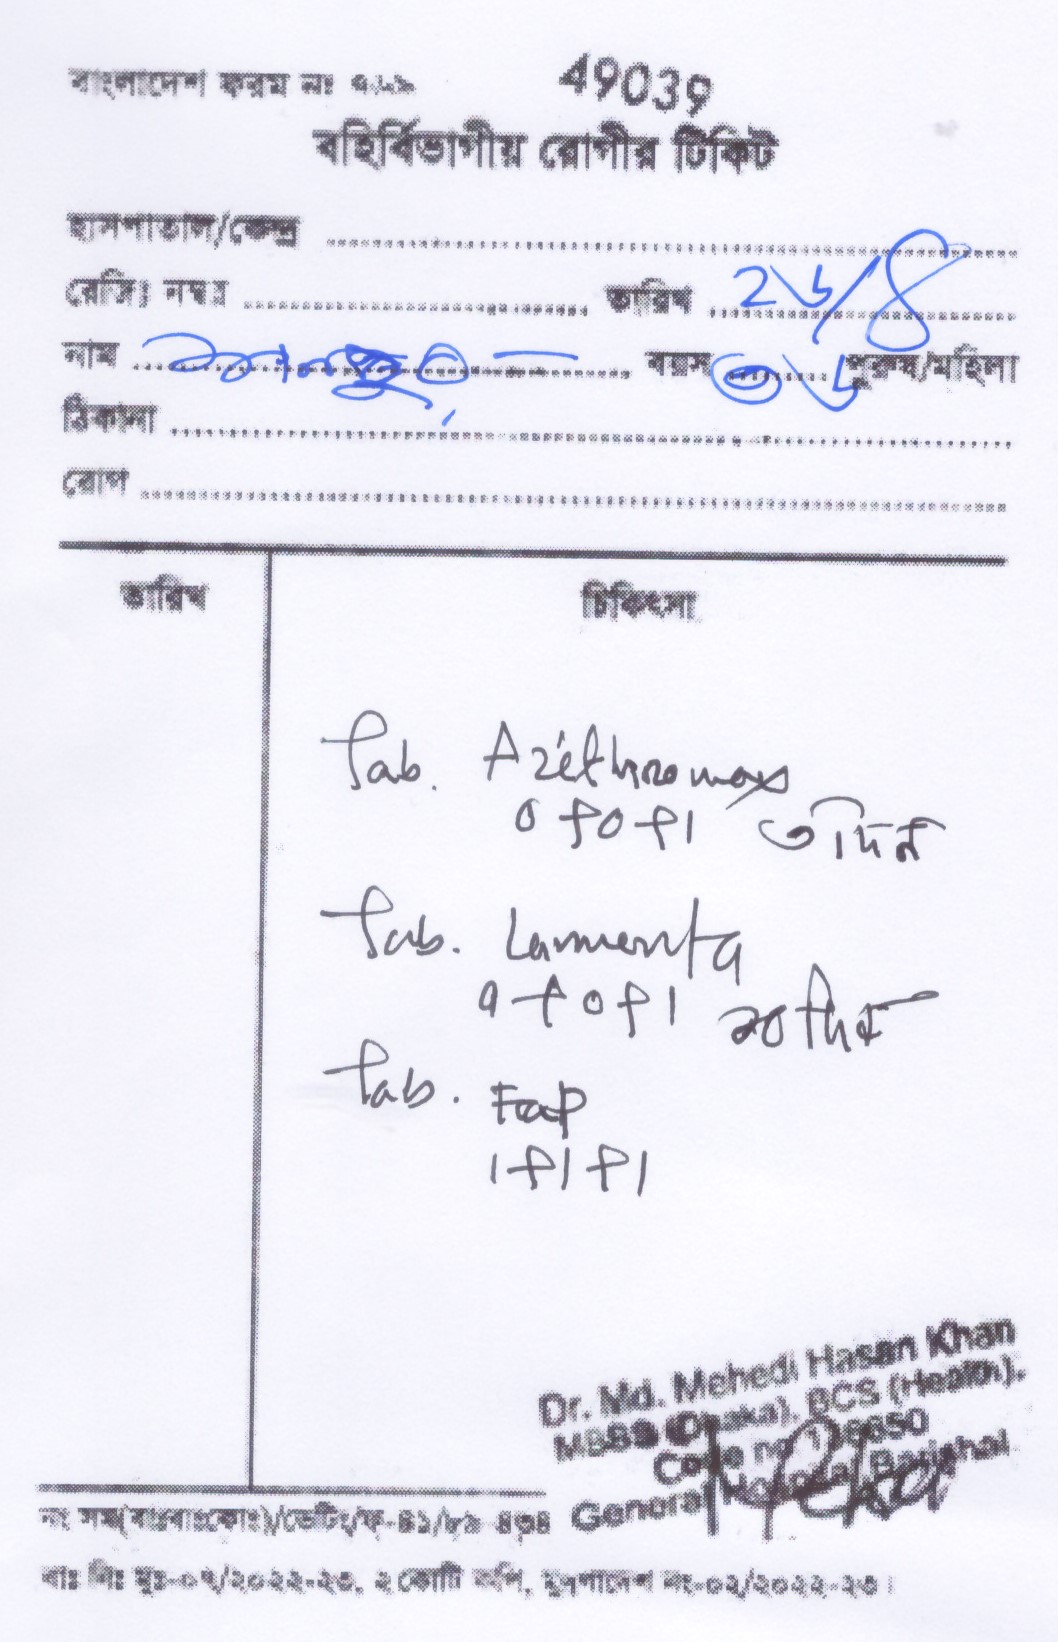 বাংলাদেশ ফরম নং ৭৮৯
49039
বহির্বিভাগীয় রোগীর টিকিট
হাসপাতাল/কেন্দ্র
রেজিঃ নম্বর তারিখ ২৬/৪
নাম বয়স ৩৬ পুরুষ/মহিলা
ঠিকানা
রোগ
তারিখ চিকিৎসা
Tab. Azithromax
0+0+1 ৩ দিন
Tab.
0+0+1 ২০ দিন
Tab. Fap
1+1+1
Dr. Md. Mehedi Hasan Khan
MBBS (Dhaka), BCS (Health),
Code no
General Hospital, Barishal
বাঃ নিঃ মুঃ-০৭/২০২২-২৩, ২ কোটি কপি, মুদ্রণাদেশ নং-০২/২০২২-২৩।